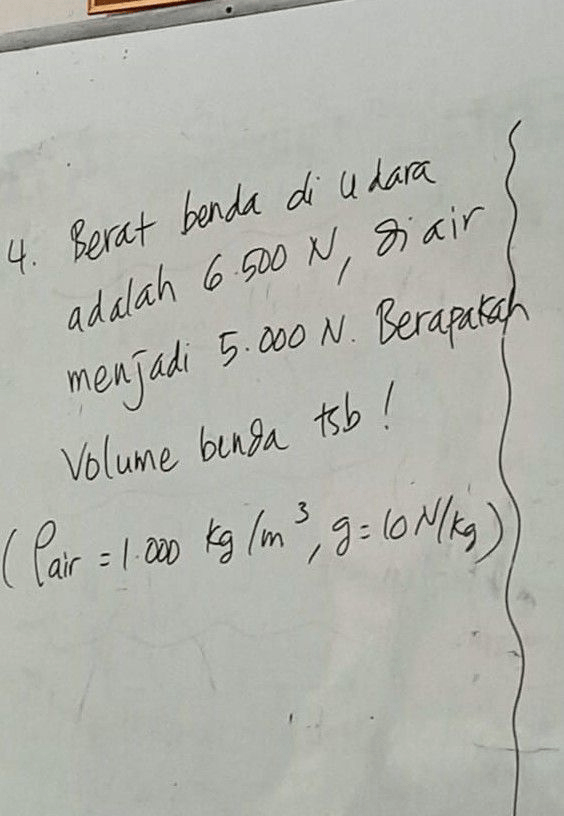 4. Berat benda di udara
adalah 6.500 N, di air
menjadi 5.000 N. Berapakah
Volume benda tsb !
( ρair = 1.000 kg/m³, g = 10 N/kg )